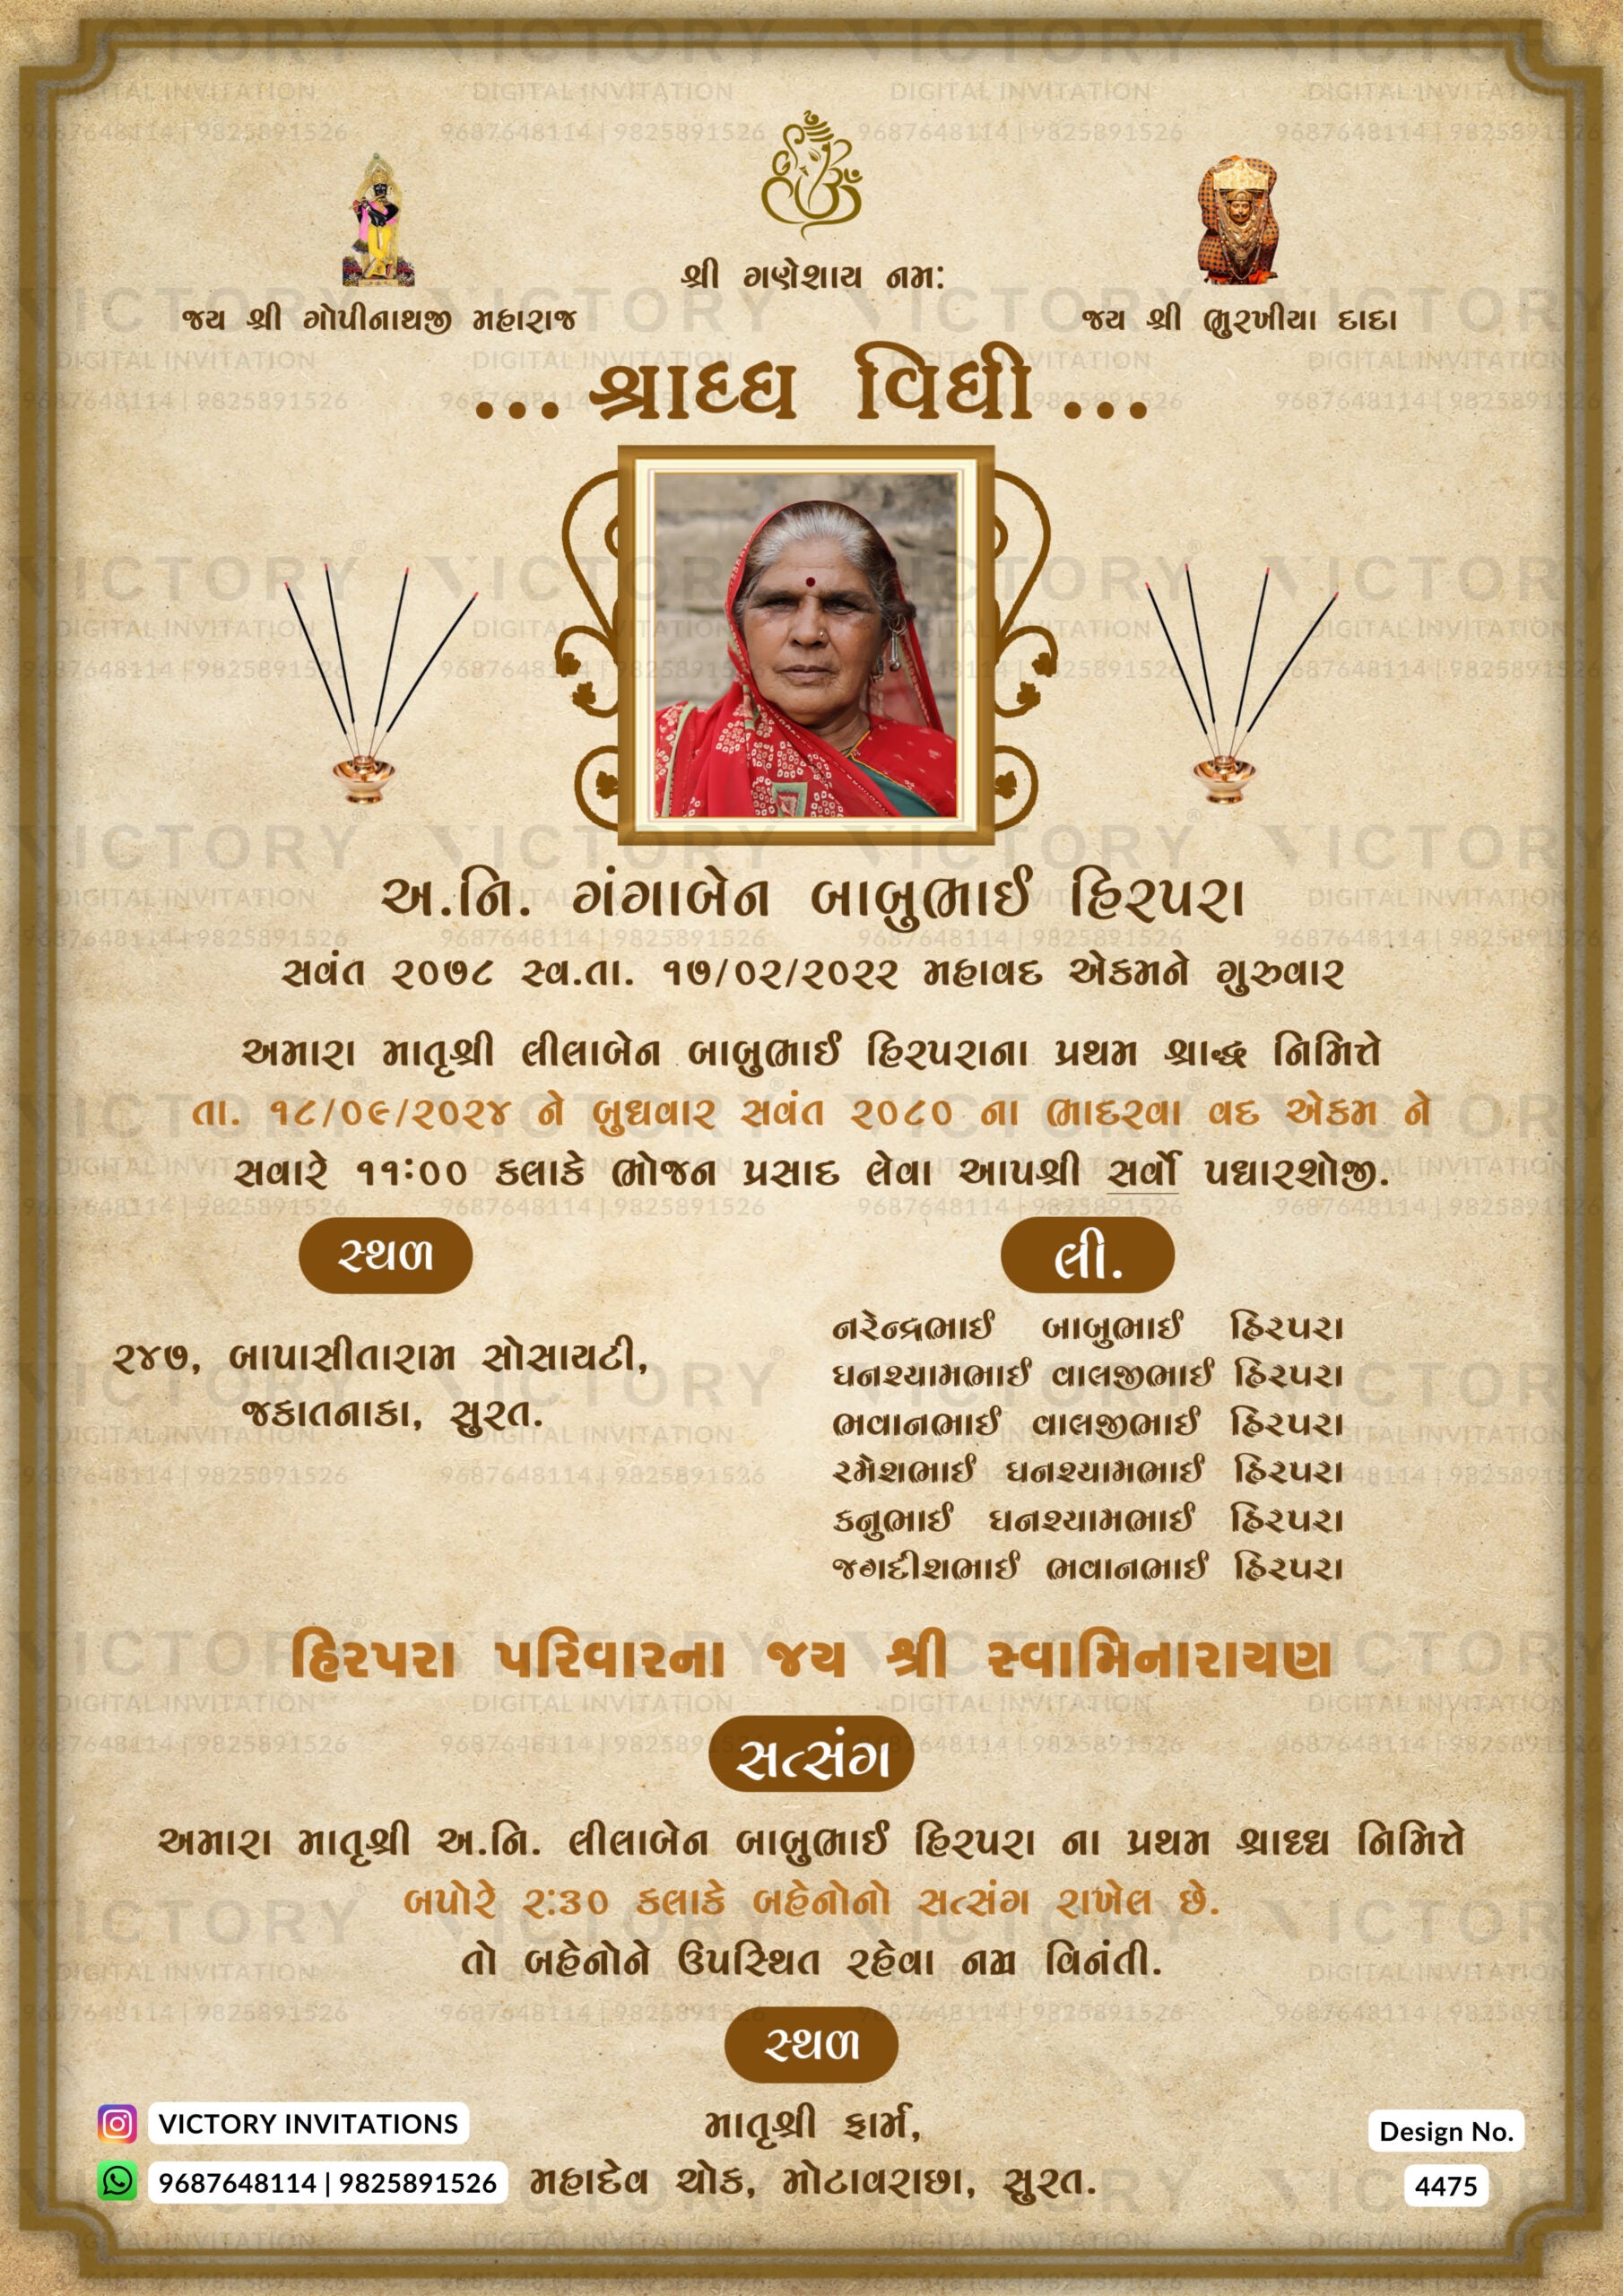 શ્રી ગણેશાય નમ:
જય શ્રી ગોપીનાથજી મહારાજ
જય શ્રી ભુરખીયા દાદા
...શ્રાધ્ધ વિધી...
અ.નિ. ગંગાબેન બાબુભાઈ હિરપરા
સવંત ૨૦૭૮ સ્વ.તા. ૧૭/૦૨/૨૦૨૨ મહાવદ એકમને ગુરુવાર
અમારા માતૃશ્રી લીલાબેન બાબુભાઈ હિરપરાના પ્રથમ શ્રાદ્ધ નિમિત્તે
તા. ૧૮/૦૯/૨૦૨૪ ને બુધવાર સવંત ૨૦૮૦ ના ભાદરવા વદ એકમ ને
સવારે ૧૧:૦૦ કલાકે ભોજન પ્રસાદ લેવા આપશ્રી સર્વો પધારશોજી.
સ્થળ
૨૪૭, બાપાસીતારામ સોસાયટી,
જકાતનાકા, સુરત.
લી.
નરેન્દ્રભાઈ બાબુભાઈ હિરપરા
ઘનશ્યામભાઈ વાલજીભાઈ હિરપરા
ભવાનભાઈ વાલજીભાઈ હિરપરા
રમેશભાઈ ઘનશ્યામભાઈ હિરપરા
કનુભાઈ ઘનશ્યામભાઈ હિરપરા
જગદીશભાઈ ભવાનભાઈ હિરપરા
હિરપરા પરિવારના જય શ્રી સ્વામિનારાયણ
સત્સંગ
અમારા માતૃશ્રી અ.નિ. લીલાબેન બાબુભાઈ હિરપરા ના પ્રથમ શ્રાધ્ધ નિમિત્તે
બપોરે ૨:૩૦ કલાકે બહેનોનો સત્સંગ રાખેલ છે.
તો બહેનોને ઉપસ્થિત રહેવા નમ્ર વિનંતી.
સ્થળ
માતૃશ્રી ફાર્મ,
મહાદેવ ચોક, મોટાવરાછા, સુરત.
VICTORY INVITATIONS
9687648114 | 9825891526
Design No.
4475
VICTORY
DIGITAL INVITATION
9687648114 | 9825891526